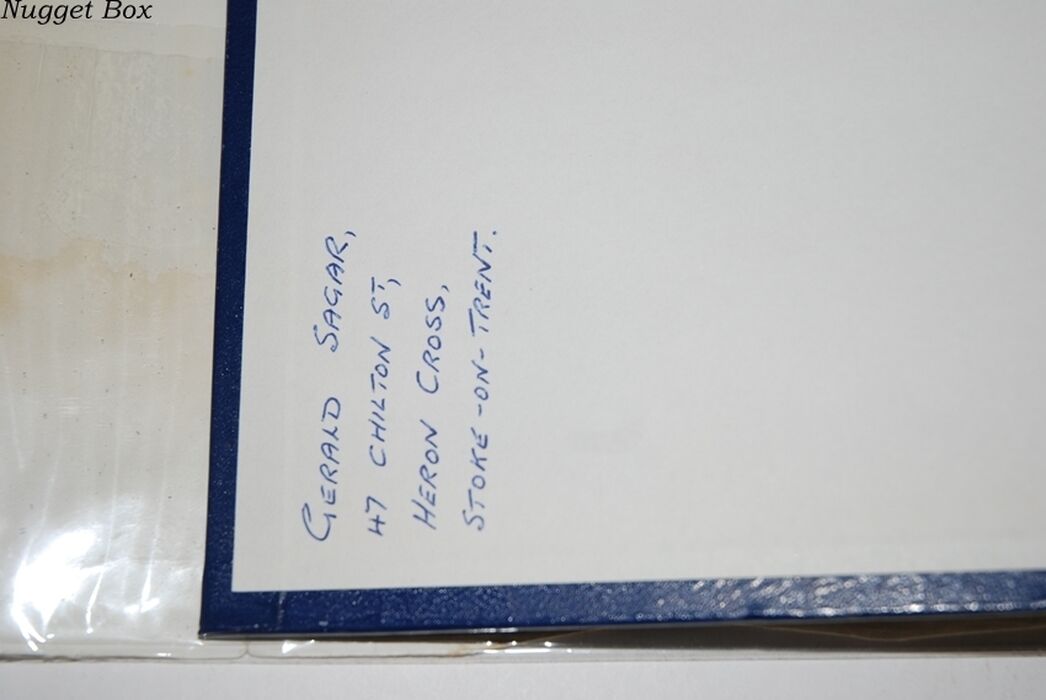 Nugget Box
GERALD SAGAR,
47 CHILTON ST,
HERON CROSS,
STOKE-ON-TRENT.